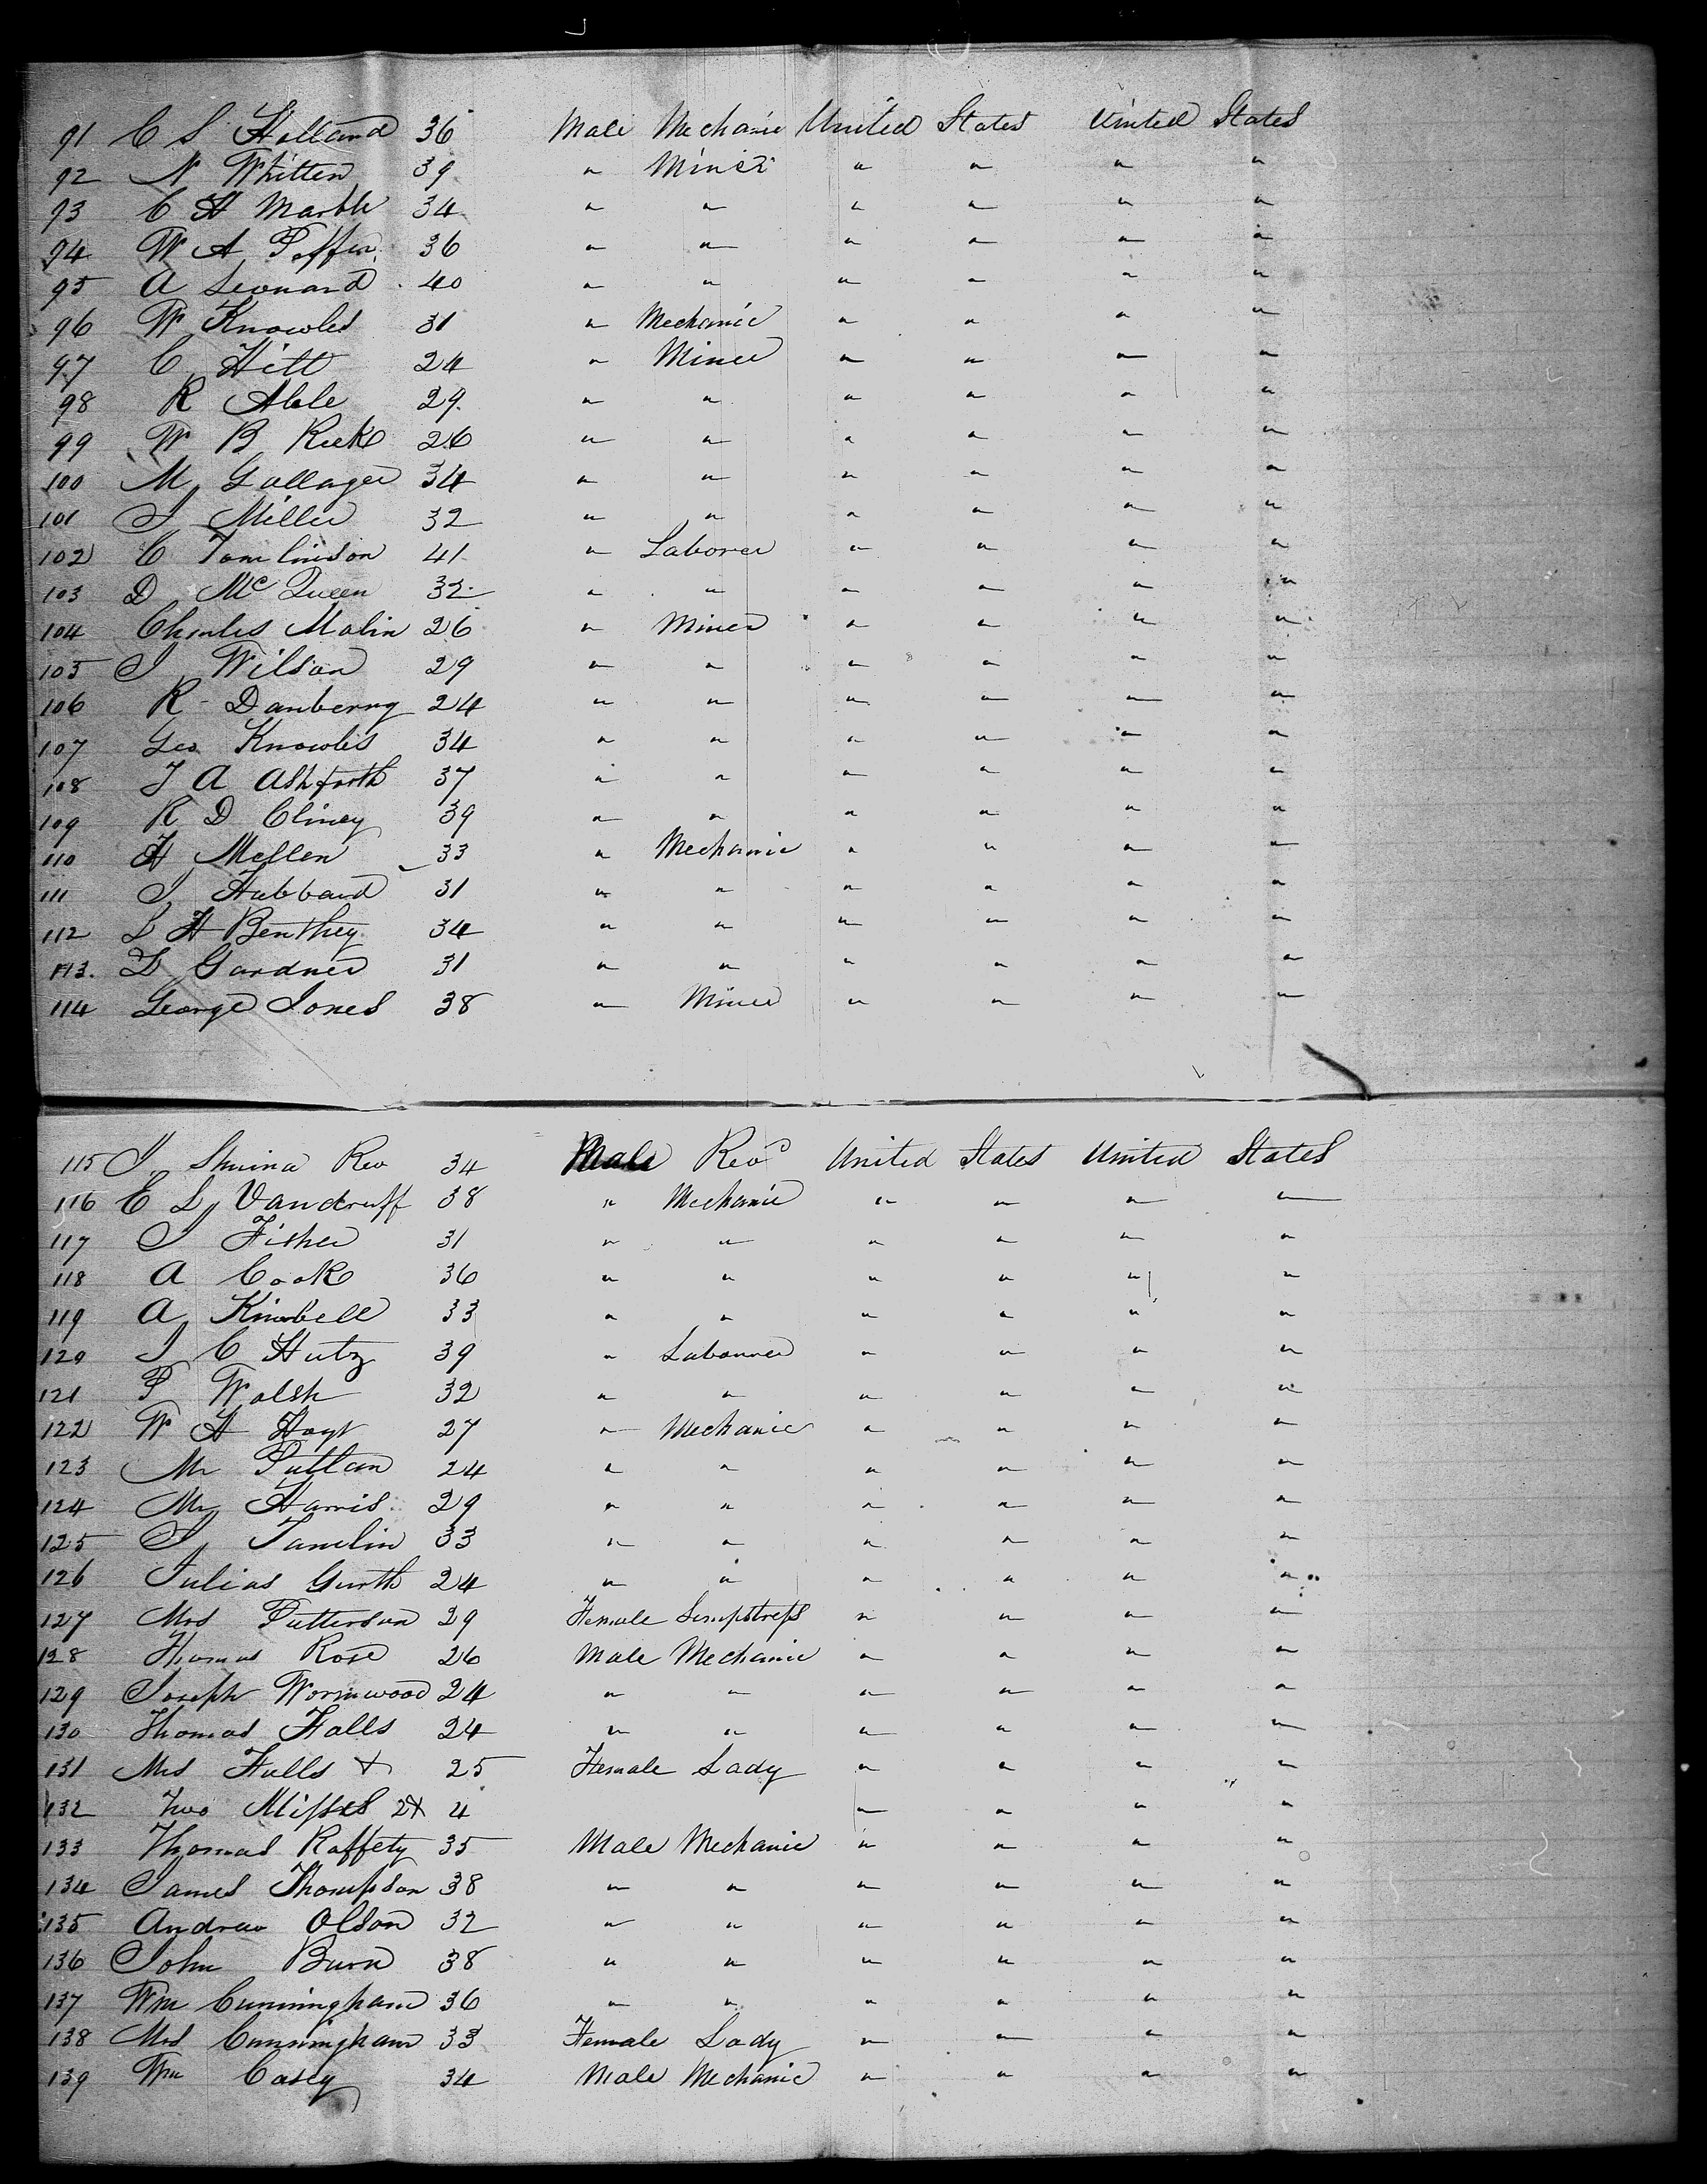 91 C S Holland 36 Male Mechanic United States United States
92 N Whitten 39 " Miner " " " "
93 C H Marble 34 " " " " " "
94 W A 36 " " " " " "
95 A Leonard 40 " " " " " "
96 W Knowles 31 " Mechanic " " " "
97 C Hill 24 " Miner " " " "
98 R Able 29 " " " " " "
99 W B 26 " " " " " "
100 M Gallager 34 " " " " " "
101 J Miller 32 " " " " " "
102 C Tomlinson 41 " Laborer " " " "
103 D McQueen 32 " " " " " "
104 Charles Malin 26 " Miner " " " "
105 J Wilson 29 " " " " " "
106 R Danberry 24 " " " " " "
107 Geo Knowles 34 " " " " " "
108 J A Ashforth 37 " " " " " "
109 R D Cliney 39 " " " " " "
110 H Mellen 33 " Mechanic " " " "
111 J Hubbard 31 " " " " " "
112 L H Benthey 34 " " " " " "
113. L Gardner 31 " " " " " "
114 George Jones 38 " Miner " " " "
115 J. Rev 34 Male Revd United States United States
116 E L Vandruff 38 " Mechanic " " " "
117 J Fisher 31 " " " " " "
118 A Cook 36 " " " " " "
119 A Kimbell 33 " " " " " "
120 J C Hutz 39 " Labourer " " " "
121 P Walsh 32 " " " " " "
122 W H Hoyt 27 " Mechanic " " " "
123 Mr 24 " " " " " "
124 Mr Harris 29 " " " " " "
125 J Tamlin 33 " " " " " "
126 Julias Gurth 24 " " " " " "
127 Mrs Patterson 29 Female Sempstress " " " "
128 Thomas Rose 26 Male Mechanic " " " "
129 Joseph Wormwood 24 " " " " " "
130 Thomas Falls 24 " " " " " "
131 Mrs Falls + 25 Female Lady " " " "
132 Two Misses 2+ 4 " " " "
133 Thomas Raffety 35 Male Mechanic " " " "
134 James Thompson 38 " " " " " "
135 Andrew Olson 32 " " " " " "
136 John Burn 38 " " " " " "
137 Wm Cunningham 36 " " " " " "
138 Mrs Cunningham 33 Female Lady " " " "
139 Wm Casey 34 Male Mechanic " " " "